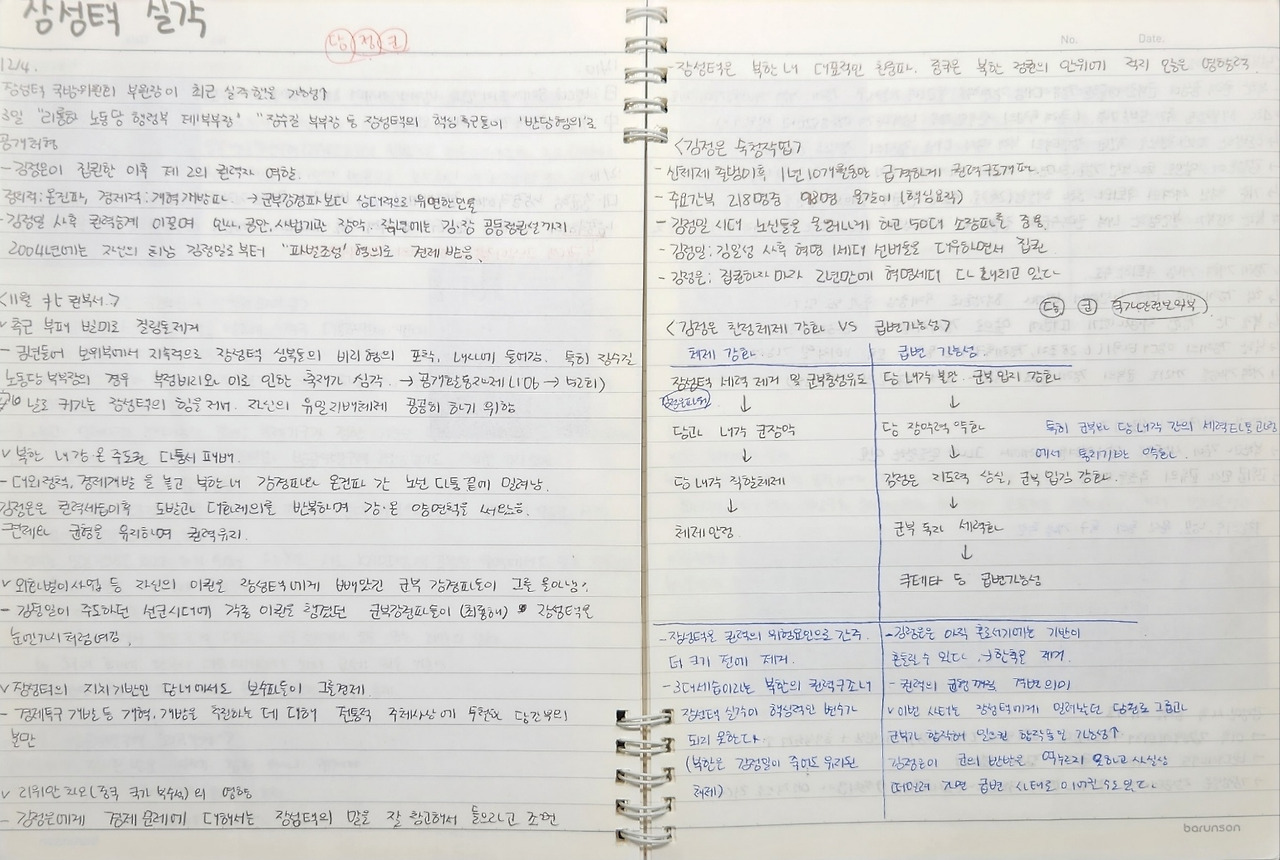 장성택 실각
당 정 군
12/4.
장성택 국방위원회 부위원장이 최근 실각했을 가능성↑
3일 "리룡하 노동당 행정부 제1부부장" "장수길 부부장 등 장성택의 핵심측근들이 '반당혐의'로
공개처형
- 김정은이 집권한 이후 제 2의 권력자 역할.
정치적: 온건파, 경제적: 개혁개방파 → 군부강경파보다 상대적으로 유연한인물
- 김정일 사후 권력승계 이끌며 인사, 공안, 사법기관 장악. 김·장 공동정권설까지
2004년에는 자신의 처남 김정일로부터 "파벌조성" 혐의로 견제 받음.
<11월 北 권부서.>
v 측근 부패 빌미로 걸림돌제거
- 금년들어 보위부에서 지속적으로 장성택 심복들의 비리 혐의 포착, 내사에 들어감. 특히 장수길
노동당 부부장의 경우 부정비리와 이로 인한 축재가 심각. → 공개활동자제
날로 커가는 장성택의 힘을 견제. 자신의 유일지배체제 공공히 하기 위함
v 북한 내 강·온 주도권 다툼서 패배.
- 대외정책, 경제개발 을 놓고 북한 내 강경파와 온건파 간 노선 다툼 끝에 밀려남.
김정은은 권력세습이후 도발과 대화제의를 반복하며 강·온 양면책을 써왔음.
견제와 균형을 유지하며 권력유지.
v 외화벌이사업 등 자신의 이권을 장성택에게 빼앗긴 군부 강경파들이 그를 몰아냄?
- 김정일이 주도하던 선군시대에 각종 이권을 챙겼던 군부강경파들이 (최룡해) 장성택을
눈엣가시처럼여김.
v 장성택의 지지기반인 당내에서도 보수파들이 그를견제.
- 경제특구 개발 등 개혁, 개방을 추진하는 데 대해 전통적 주체사상에 투철한 당간부의
불만
v 리위안 차오(중국 국가 부주석)의 영향
- 김정은에게 경제 문제에 대해서는 장성택의 말을 잘 참고해서 들으라고 조언
No. Date.
- 장성택은 북한 내 대표적인 친중파. 중국은 북한 정권의 안위에 적지 않은 영향력.
<김정은 숙청작업>
- 신체제 출범이후 1년 10개월동안 급격하게 권력구도개편.
- 주요간부 218명중 98명 물갈이 (핵심요직)
- 김정일 시대 노신들을 물러나게 하고 50대 소장파를 중용.
- 김정일: 김일성 사후 혁명 1세대 선배들을 대우하면서 집권
- 김정은: 집권하자 마자 2년만에 혁명세대 다 내치고 있다
당 군 국가안전보위부
<김정은 친정체제 강화 VS 급변가능성>
체제 강화
급변 가능성
장성택 세력 제거 및 군부충성유도
당 내각 불안. 군부 입지 강화
↓
↓
당과 내각 군장악
당 장악력 약화
특히 군부와 당내각 간의 세력다툼고리
에서 통치기반 약화.
↓
↓
당 내각 직할체제
김정은 지도력 상실, 군부 입김 강화.
↓
↓
체제안정
군부 독자 세력화
↓
쿠데타 등 급변가능성
- 장성택은 권력의 위협요인으로 간주
더 크기 전에 제거.
- 3대세습이라는 북한의 권력구조내
장성택 실각이 핵심적인 변수가
되지 못한다
(북한은 김정일이 죽어도 유지된
체제)
- 김정은은 아직 홀로서기에는 기반이
흔들릴 수 있다. → 한축은 제거.
- 권력의 균형
v 이번 사태는 장성택에게 밀려났던 당원로그룹과
군부가 합작해 일으킨 합작품일 가능성↑
김정은이 군의 반발을 억누르지 못하고 사실상
떠밀려 자면 급변 사태로 이어질수도있다.
barunson